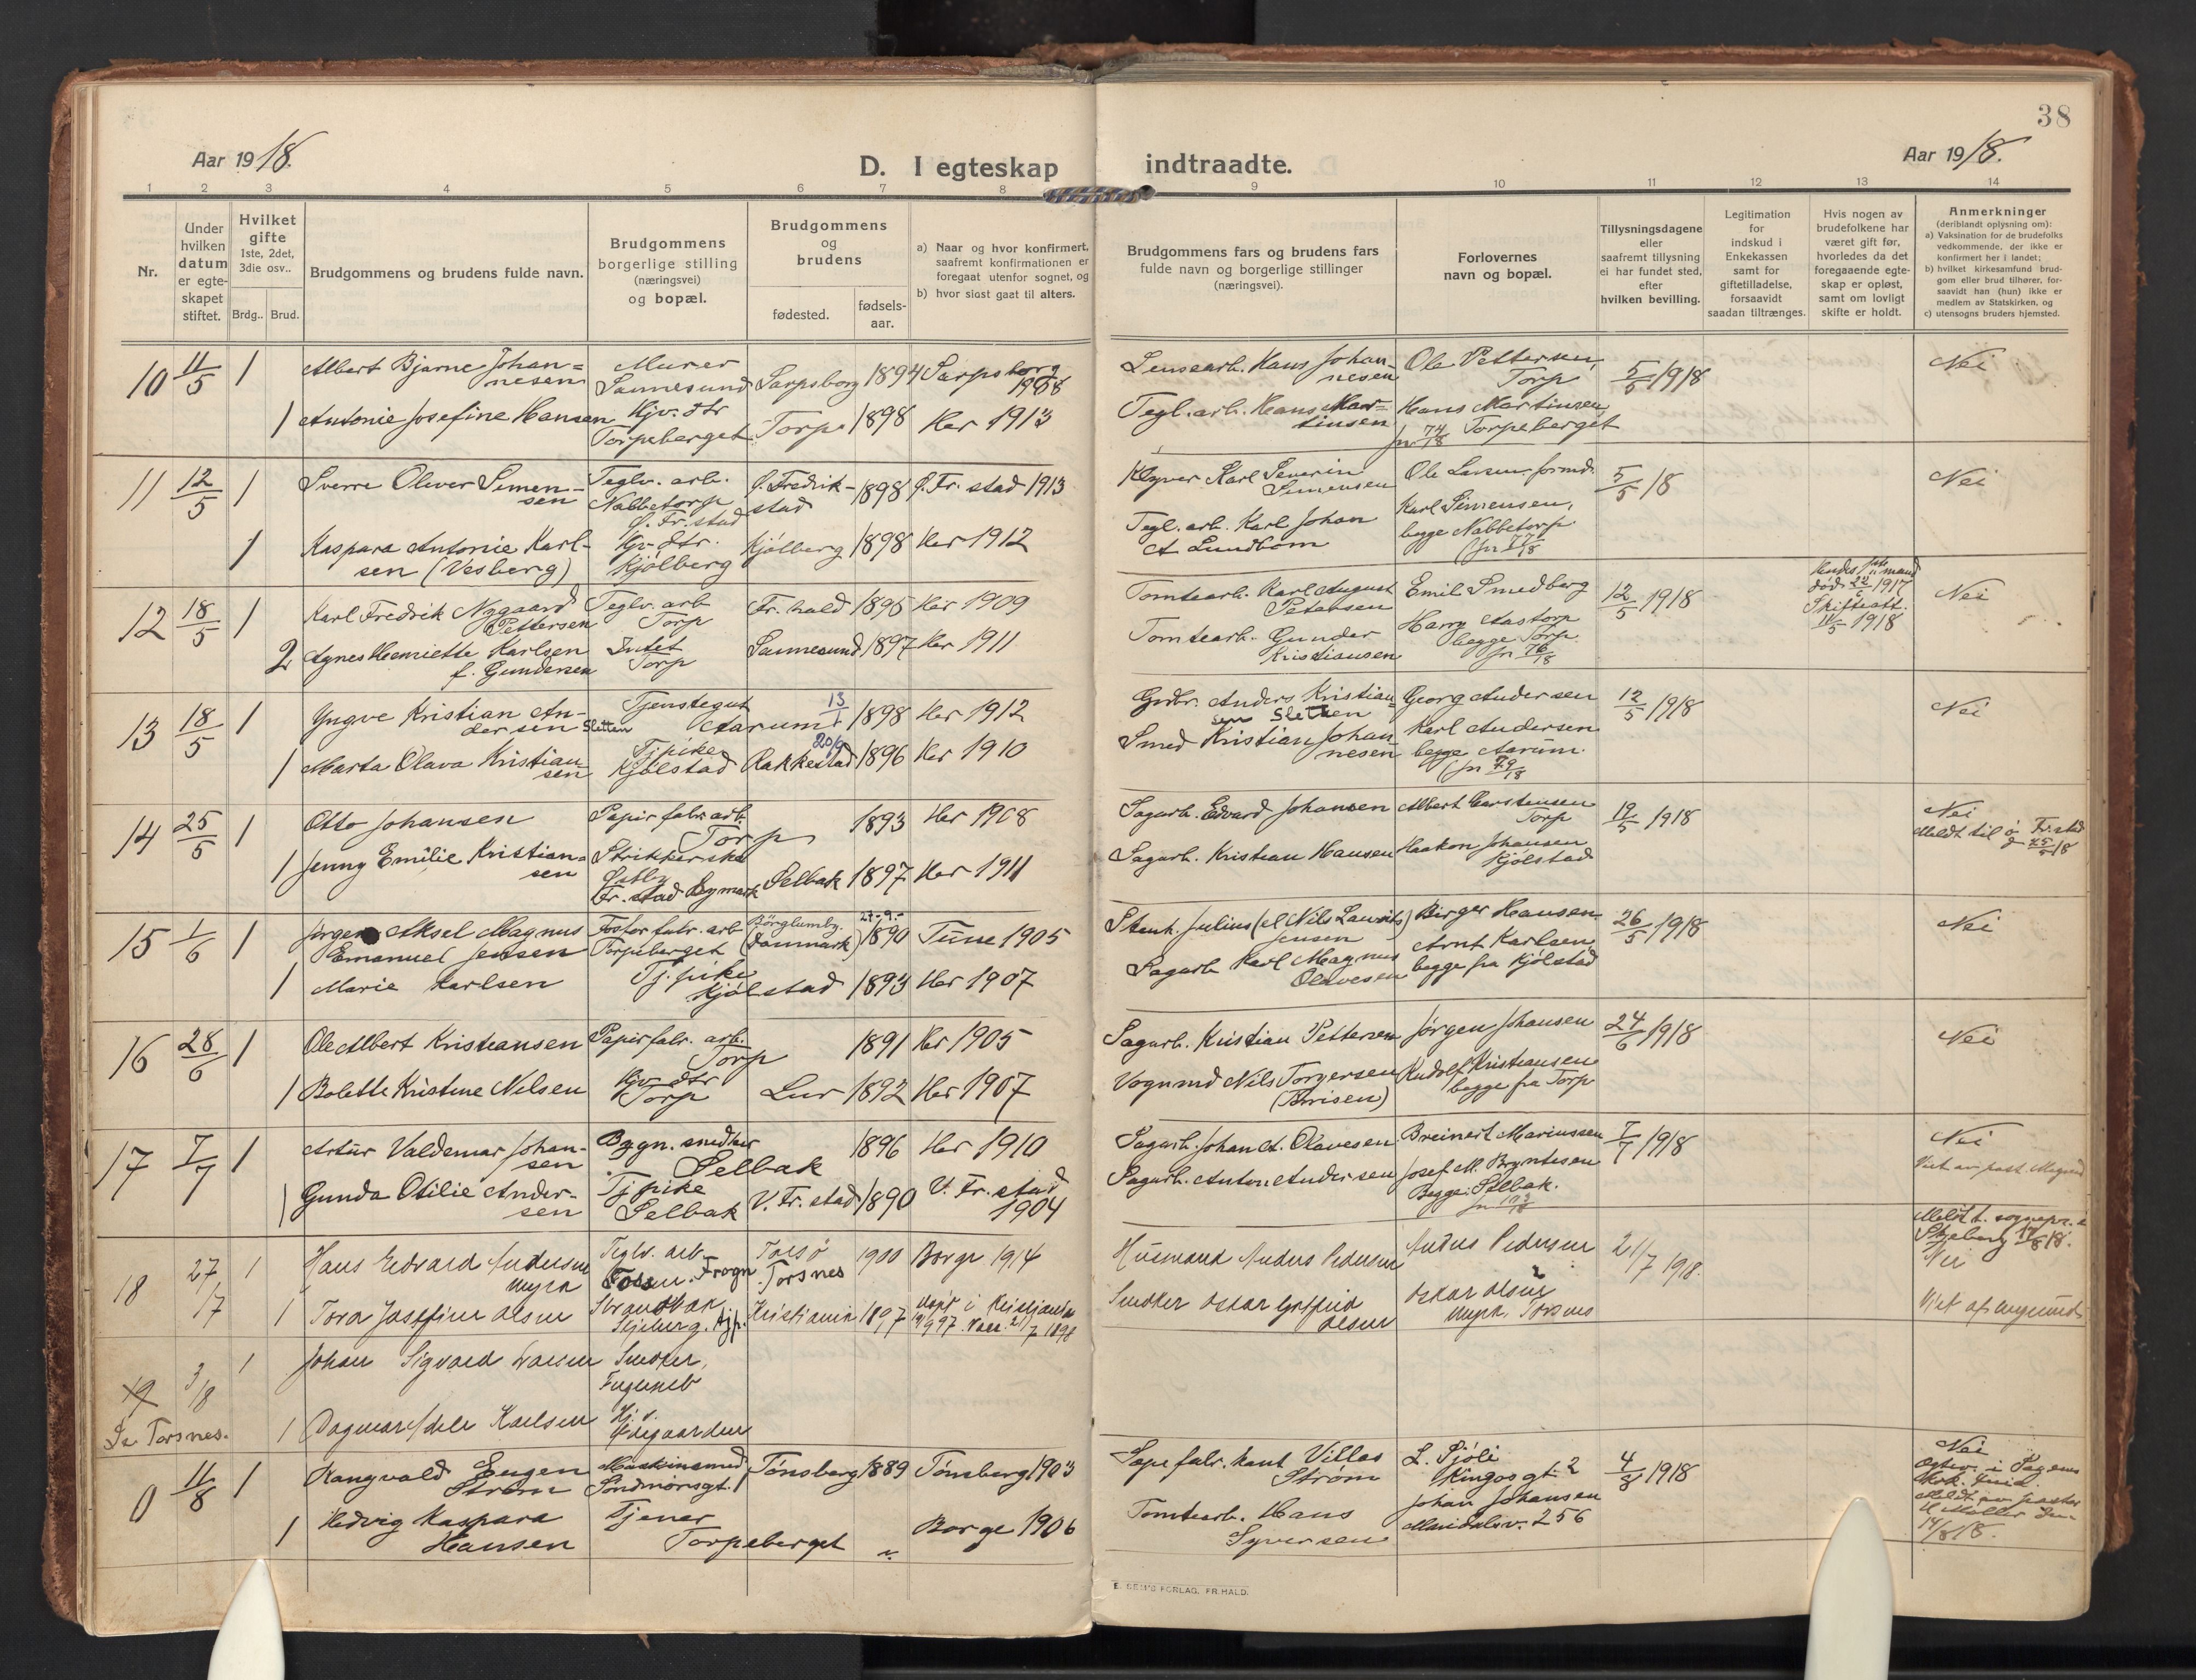 38
Aar 1918.
D. I egteskap indtraadte.
Aar 1918.
1 2 3 4 5 6 7 8 9 10 11 12 13 14
Nr.
Under hvilken datum er egte-skapet stiftet.
Hvilket gifte 1ste, 2det, 3die osv..
Brdg.. Brud.
Brudgommens og brudens fulde navn.
Brudgommens borgerlige stilling (næringsvei) og bopæl.
Brudgommens og brudens
fødested.
fødsels-aar.
a) Naar og hvor konfirmert, saafremt konfirmationen er foregaat utenfor sognet, og
b) hvor sidst gaat til alters.
Brudgommens fars og brudens fars fulde navn og borgerlige stillinger (næringsvei).
Forlovernes navn og bopæl.
Tillysningsdagene eller saafremt tillysning ei har fundet sted, efter hvilken bevilling.
Legitimation for indskud i Enkekassen samt for giftetilladelse, forsaavidt saadan tiltrænges.
Hvis nogen av brudefolkene har været gift før, hvorledes da det foregaaende egte-skap er opløst, samt om lovligt skifte er holdt.
Anmerkninger (deriblandt oplysning om):
a) Vaksination for de brudefolks vedkommende, der ikke er konfirmert her i landet;
b) hvilket kirkesamfund brud-gom eller brud tilhører, for-saavidt han (hun) ikke er medlem av Statskirken, og
c) utensogns bruders hjemsted.
10 11/5 1 Albert Bjarne Johan=nesen Murer Sannesund Sarpsborg 1894 Sarpsborg 1908 Lensearb. Hans Johannesen Ole Pettersen, Torp 5/5 1918 Nei
1 Antonie Josefine Hansen Hjv. dtr Torpeberget Torp 1898 Her 1913 Tegl.arb. Hans Mar=tinsen Hans Martinsen, Torpeberget
fn 74/18
11 12/5 1 Sverre Oliver Simen-sen Teglv. arb. Nabbetorp Ø. Fr.stad Ø. Fredrik-stad 1898 Ø. Fr.stad 1913 Karl Severin Simensen Ole Larsen, formd. 5/5 18 Nei
1 Kaspara Antonie Karl-sen (Vesberg) Hjv. dtr. Kjølberg Kjølberg 1898 Her 1912 Tegl.arb. Karl Johan A Lundbom Karl Simensen, begge Nabbetorp
fn 77/18
12 18/5 1 Karl Fredrik Nygaard Pettersen Teglv. arb Torp Fr.hald 1895 Her 1909 Tomtearb. Karl August Petersen Emil Smedberg 12/5 1918 Nei
2 Agnes Henriette Karlsen f. Gundersen Intet Torp Sannesund 1897 Her 1911 Tomtearb. Gunder Kristiansen Harry Aastorp begge Torp
fn 76/18
mand død 1917 Skifteatt. 11/5 1918
13 18/5 1 Yngve Kristian An-dersen Sletten Tjenstegut Aarum 13/1 1898 Her 1912 Grdbr. Anders Kristian=sen Sletten Georg Andersen 12/5 1918 Nei
1 Marta Olava Kristian-sen Tj.pike Kjølstad Rakkestad 20/9 1896 Her 1910 Smed Kristian Johannesen Karl Andersen begge Aarum.
fn 79/18
14 25/5 1 Otto Johansen Papirfabr. arb. Torp 1893 Her 1908 Sagarb. Edvard Johansen Albert Carstensen Torp 19/5 1918 Nei
Meldt til Ø Fr.stad 25/5 18
1 Jenny Emilie Kristian=sen Strikkerske Fr.stad Bymark Selbak 1897 Her 1911 Sagarb. Kristian Hansen Haakon Johansen Kjølstad
15 1/6 1 Jørgen Aksel Magnus Emanuel Jensen Fosfor fabr. arb Torpeberget Børglumby. (Danmark) 27-9- 1890 Tune 1905 Stenh. Julius (el Nils Laurits) Jensen Birger Hansen 26/5 1918 Nei
1 Marie Karlsen Tj.pike Kjølstad 1893 Her 1907 Sagarb Karl Magnus Olavesen Arnt Karlsen, begge fra Kjølstad
16 28/6 1 Ole Albert Kristiansen Papirfabr. arb. Torp 1891 Her 1905 Sagarb. Kristian Pettersen Jørgen Johansen 24/6 1918 Nei
1 Bolette Kristine Nilsen Hjv. dtr Torp Lur 1892 Her 1907 Vognmd Nils Torgersen Rudolf Kristiansen begge fra Torp
17 7/7 1 Artur Valdemar Johan-sen Bygn. snedker Selbak 1896 Her 1910 Sagarb. Johan A. Olavesen Breinert Mariussen 7/7 1918 Nei
1 Gunda Otilie Ander-sen Tj pike Selbak V. Fr.stad 1890 V. Fr.stad 1904 Sagarb. Anton Andersen Josef M. Bryntesen Begge: Selbak.
Viet av past. Magnus
18 27/7 1 Hans Edvard Andersen Myra Teglv. arb. Frogn Torsø Torsnes 1900 Borge 1914 Husmand Anders Pedersen Anders Pedersen 21/7 1918.
Meldt t. sognepr. i Skjeberg 18.
Nei
1 Tora Josefine Olsen Skjeberg. Kristiania 1897 Døpt i Kristiania Snekker Oskar Gotfrid Olsen Oskar Olsen Myra, Torsnes
Viet af
19 3/8 1 Johan Sigvard Larsen Snekker, Fuglevik
Se Torsnes.
1 Dagmar Adele Karlsen
0 11/8 1 Rangvald Eugen Strøm Maskinsmed Søndmørsgt. 1 Tønsberg 1889 Tønsberg 1903 Sepefabrikant Villas Strøm L. Sjøli Kingosgt. 2 4/8 1918 Nei
1 Hedvig Kaspara Hansen Tjener Torpeberget " Borge 1906 Tomtearb. Hans Syversen Johan Johansen Maridalsv. 256
E. SEM'S FORLAG, FR.HALD.